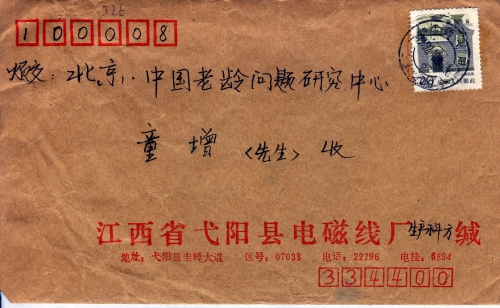 326
100008
烦交：北京，中国老龄问题研究中心
童 增 〈先生〉 收
江西省弋阳县电磁线厂 生产科方 缄
地址：弋阳县圭峰大道 区号：07038 电话：22796 电挂：6894
334400